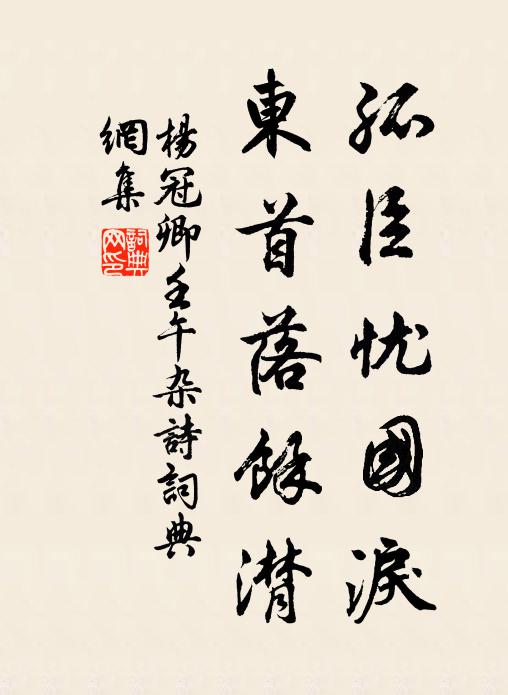 孤臣忧國淚
東首落餘潸
楊冠卿壬午杂詩詞典
網集
詞典
网印